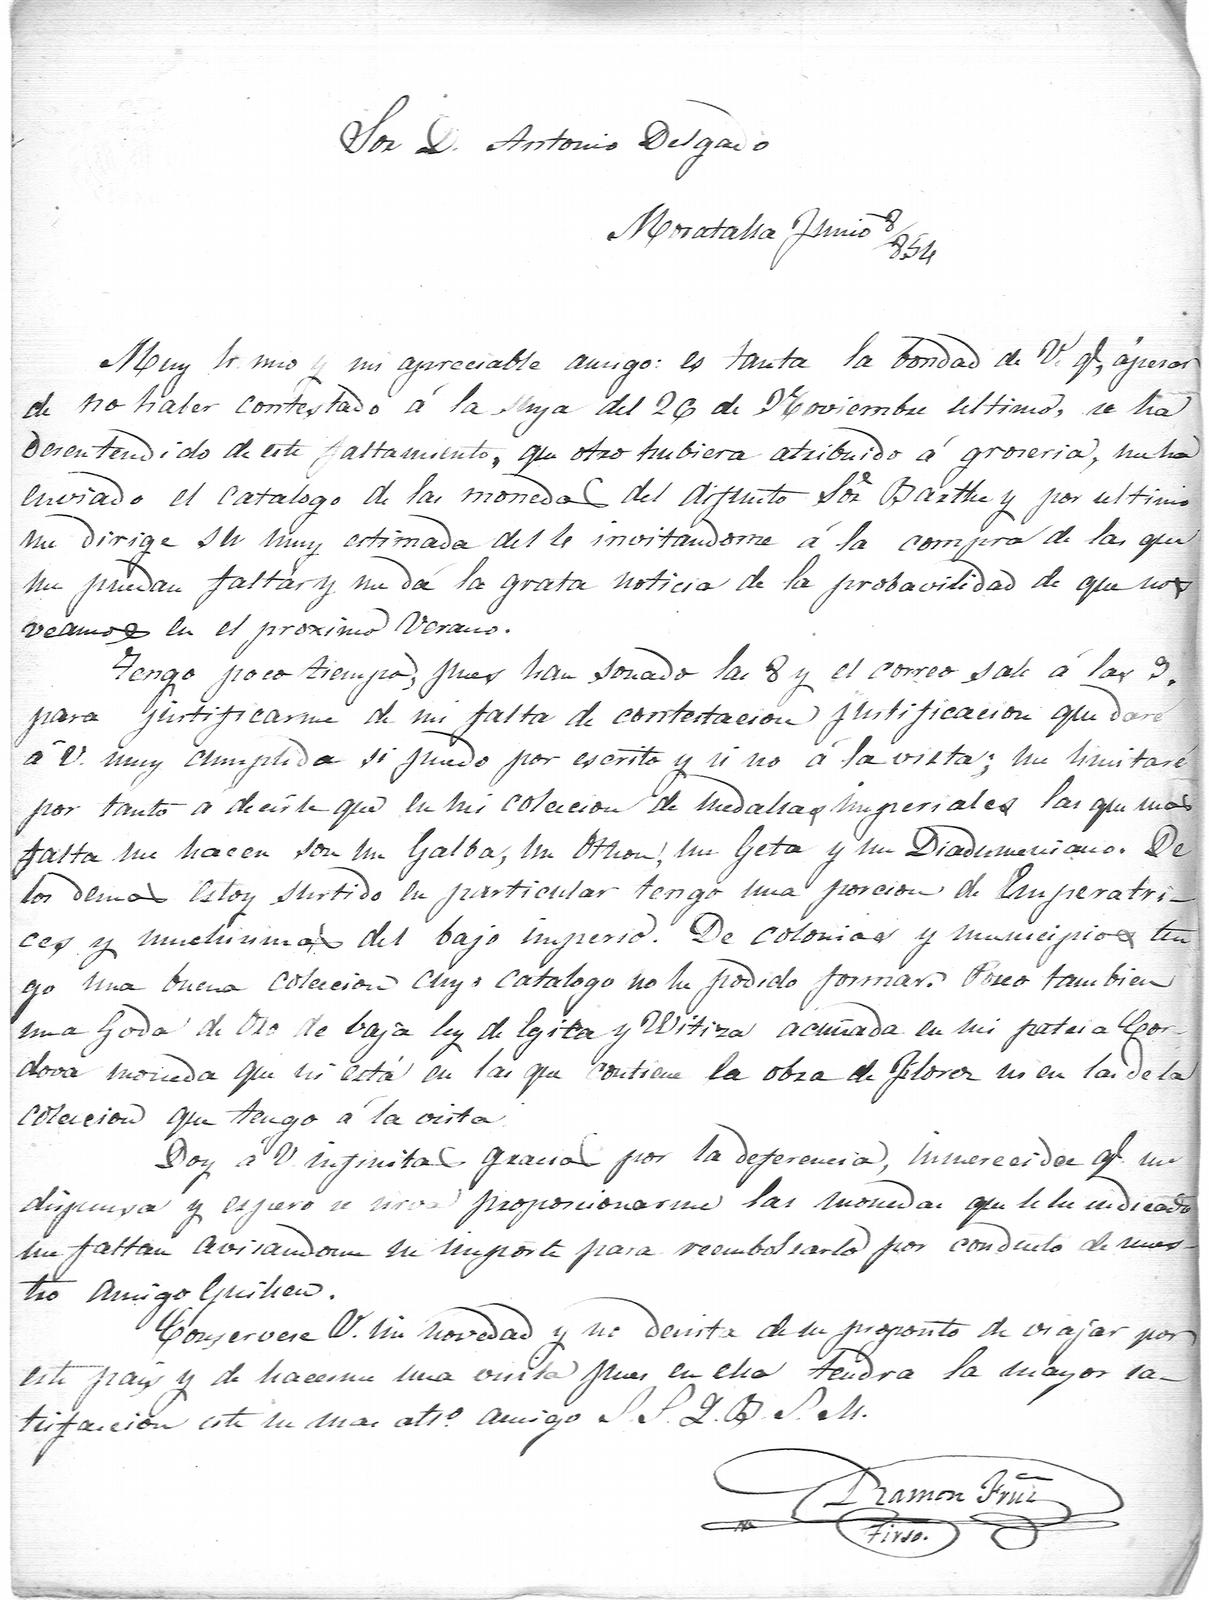 Sor D. Antonio Delgado
Moratalla Junio 8/854
Muy Sr. mio y mi apreciable amigo: es tanta la bondad de V. q.e, ápesar
de no haber contestado á la suya del 26 de Noviembre ultimo, se ha
desentendido de este faltamiento, que otro hubiera atribuido á groseria, me ha
enviado el catalogo de las monedas del difunto Sor Barthe y por ultimo
me dirige su muy estimada del 1º invitandome á la compra de las que
me puedan faltar y me dá la grata noticia de la probavilidad de que nos
veamos en el proximo Verano.
Tengo poco tiempo, pues han sonado las 8 y el correo sale á las 9.
para justificarme de mi falta de contestacion justificacion que daré
á V. muy cumplida si puedo por escrito y si no á la vista; me limitaré
por tanto a decirle que en mi coleccion de medallas imperiales las que mas
falta me hacen son un Galba, un Othon, un Geta y un Diadumeniano. De
los demas estoy surtido en particular tengo una porcion de Emperatri-
ces y muchisimas del bajo imperio. De colonias y municipios ten
go una buena coleccion cuyo catalogo no he podido formar. Poseo tambien
una Goda de Oro de baja ley de Egica y Witiza acuñada en mi patria Cor-
dova moneda que ni está en las que contiene la obra de Florez ni en las de la
coleccion que tengo á la vista
Doy á V. infinitas gracias por la deferencia, inmerecida q.e me
dispensa y espero se sirva proporcionarme las monedas que le he indicado
me faltan avisandome su importe para reembolsarlo por conducto de nues-
tro amigo Guillen.
Conservese V. sin novedad y no desista de su proposito de viajar por
este pais y de hacerme una visita pues en ella tendra la mayor sa-
tisfaccion este su mas atto. amigo S. S. Q. B. S. M.
Ramon Frnz
Tirso.